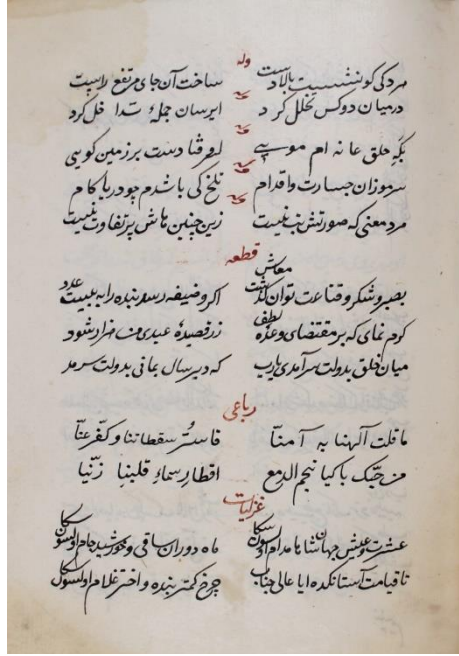 وله
مردکی کو نشسیت بالا دست ساخت آن جای مرتفع را پست
در میان دو کس تخلل کرد
بکه حلق عانه ام موسی بر زمین کوسی
سر موزان جسارت و اقدام تلخ کی باشدم چو دریا کام
مرد معنی که صورتش نیست زین چنین هاش پر تفاوت نیست
قطعه
بصبر و شکر و قناعت توان گذشت معاش اکر وضیفه رسد بنده را به بیست عدد
کرم نمای که بر مقتضای وعده لطف زر قصیدهٔ عیدی من هزار شود
میان خلق بدولت سرآمدی یارب که دیر سال بمانی بدولت سرمد
رباعی
ما قلت آلهنا به آمنّا فاستر سقطاتنا و کفّر عنّا
من حبّک باکیا نجم الدمع اقطار سماء قلبنا زنّیا
غزلیات
عشرت و عیش جهان شاها مدام اولسون سکا ماه دوران ساقی و خورشید جام اولسون سکا
تا قیامت آستانکده ایا عالی جناب چرخ کمتر بنده و اختر غلام اولسون سکا